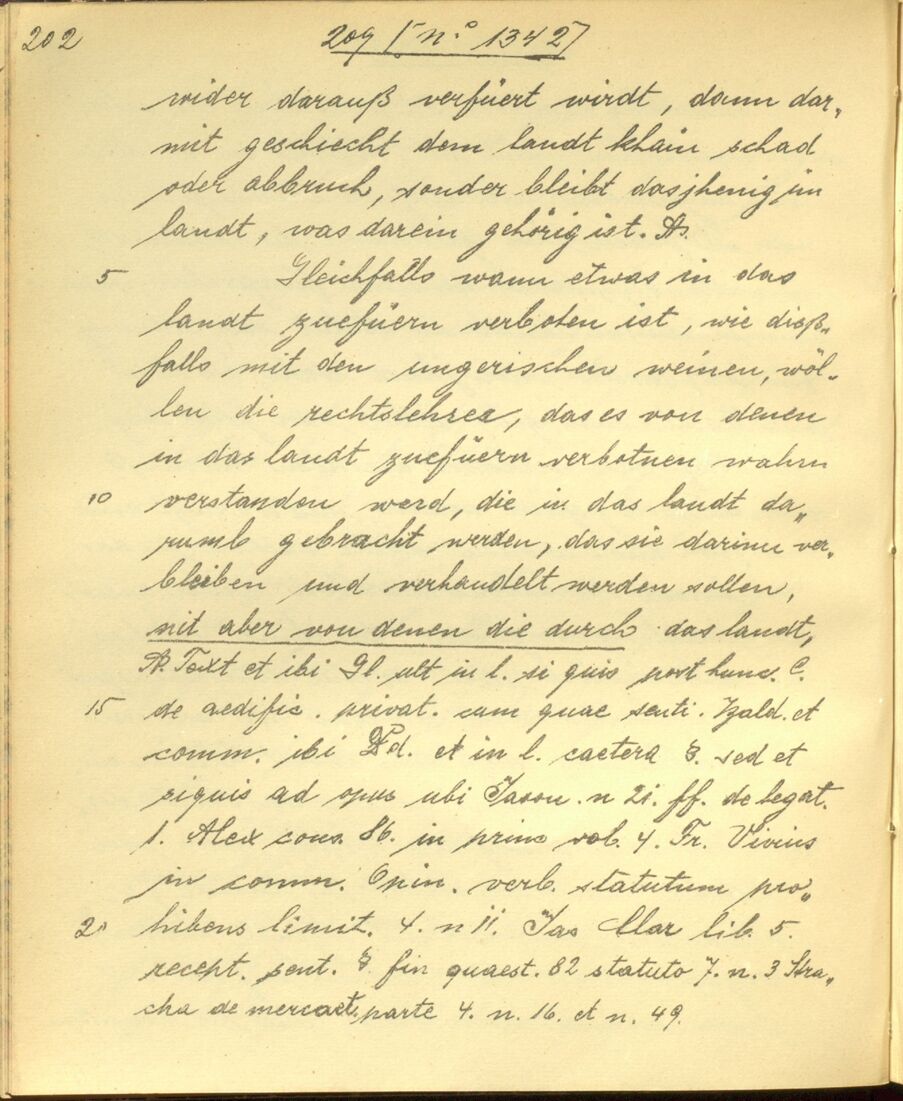 202
209 [n.° 1342]
wider darauß verfüert wirdt, dann dar„
mit geschiecht dem landt khäin schad
oder abbruch, sonder bleibt dasjhenig im
landt, was darein gehörig ist. A.
5 Gleichfalls wann etwas in das
landt zuefüern verboten ist, wie dieß„
falls mit den ungerischen weinen, wöl„
len die rechtslehrer, das es von denen
in das landt zuefüern verbotnen wahrn
10 verstanden werd, die in das landt da„
rumb gebracht werden, das sie darinn ver„
bleiben und verhandelt werden sollen,
nit aber von denen die durch das landt,
A. Text et ibi Gl. ult in l. si quis post hanc. C.
15 de aedific. privat. cum quae senti. Bald. et
comm. ibi Dd. et in l. caetera §. sed et
siquis ad opus ubi Jason. n 21. ff. de legat.
1. Alex cons. 86. in princ vol. 4. Fr. Vivius
in comm. Opin. verb. statutum pro„
20 hibens limit. 4. n 11. Jas Clar lib. 5.
recept. sent. §. fin quaest. 82 statuto 7. n. 3 Stra„
cha de mercat. parte 4. n. 16. et n. 49.